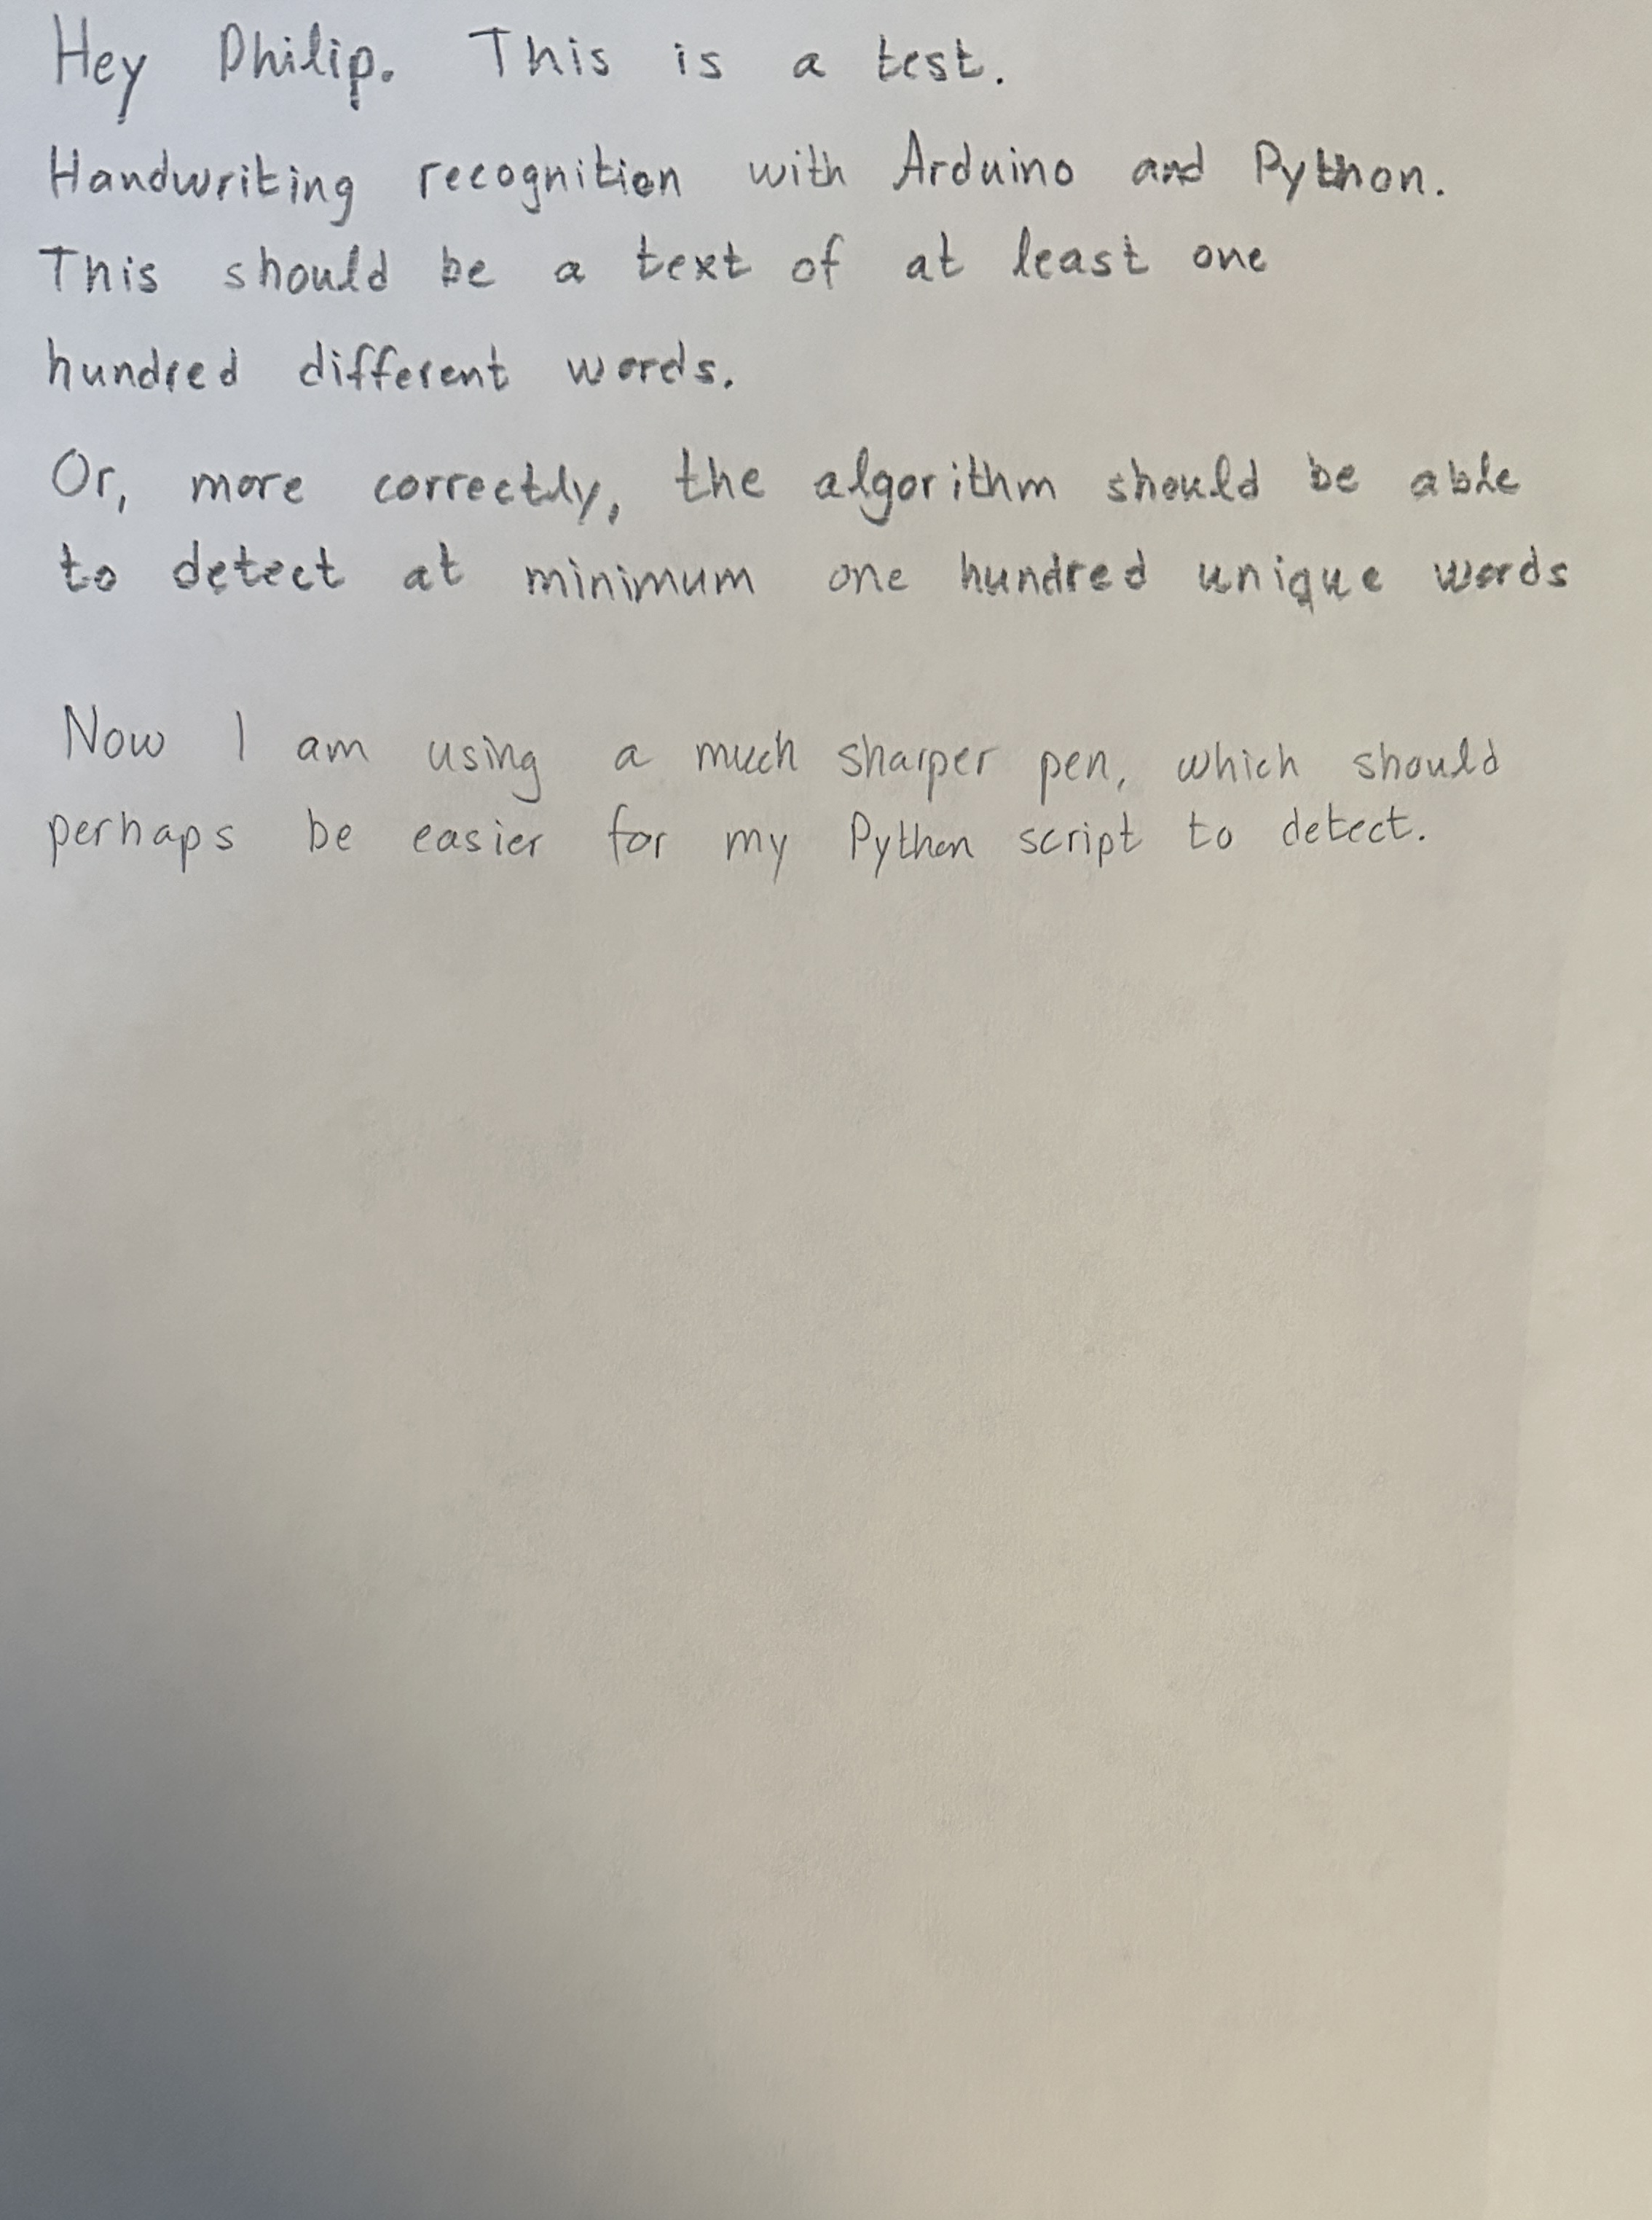 Hey Philip. This is a test.
Handwriting recognition with Arduino and Python.
This should be a text of at least one
hundred different words.
Or, more correctly, the algorithm should be able
to detect at minimum one hundred unique words
Now I am using a much sharper pen, which should
perhaps be easier for my Python script to detect.